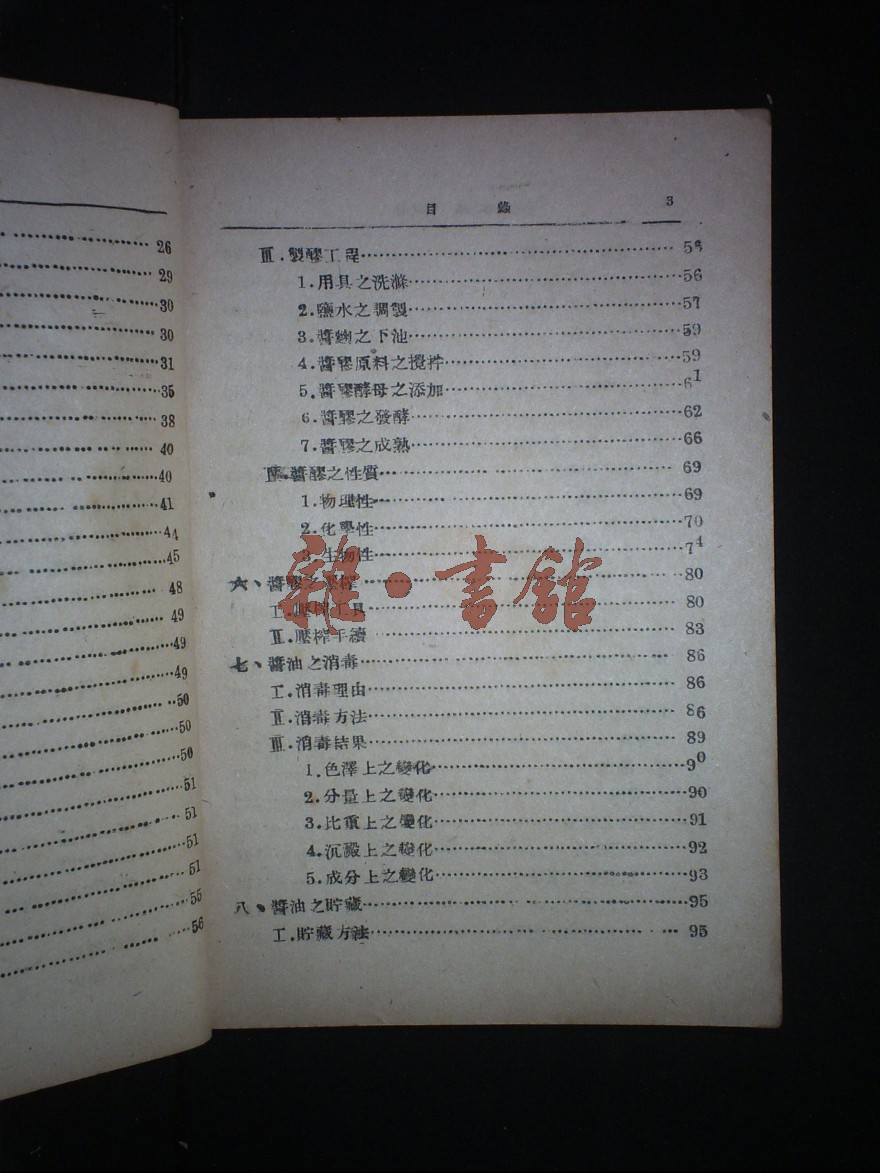 26
29
30
30
31
35
38
40
40
41
44
45
48
49
49
49
50
50
50
51
51
51
51
55
56
目 錄 3
Ⅱ.製醪工程 56
1.用具之洗滌 56
2.鹽水之調製 57
3.醬麯之下池 59
4.醬醪原料之攪拌 59
5.醬醪酵母之添加 61
6.醬醪之發酵 62
7.醬醪之成熟 66
Ⅲ.醬醪之性質 69
1.物理性 69
2.化學性 70
3.生物性 74
六、醬醪之壓榨 80
工.壓榨工具 80
Ⅱ.壓榨手續 83
七、醬油之消毒 86
工.消毒理由 86
Ⅱ.消毒方法 86
Ⅲ.消毒結果 89
1.色澤上之變化 90
2.分量上之變化 90
3.比重上之變化 91
4.沉澱上之變化 92
5.成分上之變化 93
八、醬油之貯藏 95
工.貯藏方法 95
雜·書館